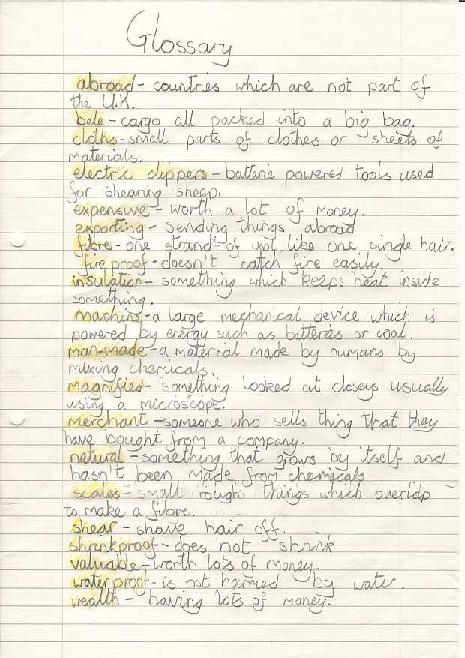 Glossary
abroad - countries which are not part of
the U.K.
bale - cargo all packed into a big bag.
cloths - small parts of clothes or sheets of
materials.
electric clippers - batterie powered tools used
for shearing sheep.
expensive - worth a lot of money.
exporting - sending things abroad
fibre - one strand of wool, like one single hair.
fire proof - doesn't catch fire easily
insulation - something which keeps heat inside
something.
machine - a large mechanical device which is
powered by energy such as batteries or coal.
man-made - a material made by humans by
mixing chemicals.
magnified - something looked at closely usually
using a microscope.
merchant - someone who sells thing that they
have bought from a company.
natural - something that grows by itself and
hasn't been made from chemicals
scales - small rough things which overlap
to make a fibre.
shear - shave hair off.
shrinkproof - does not shrink
valuable - worth lots of money.
waterproof - is not harmed by water.
wealth - having lots of money.